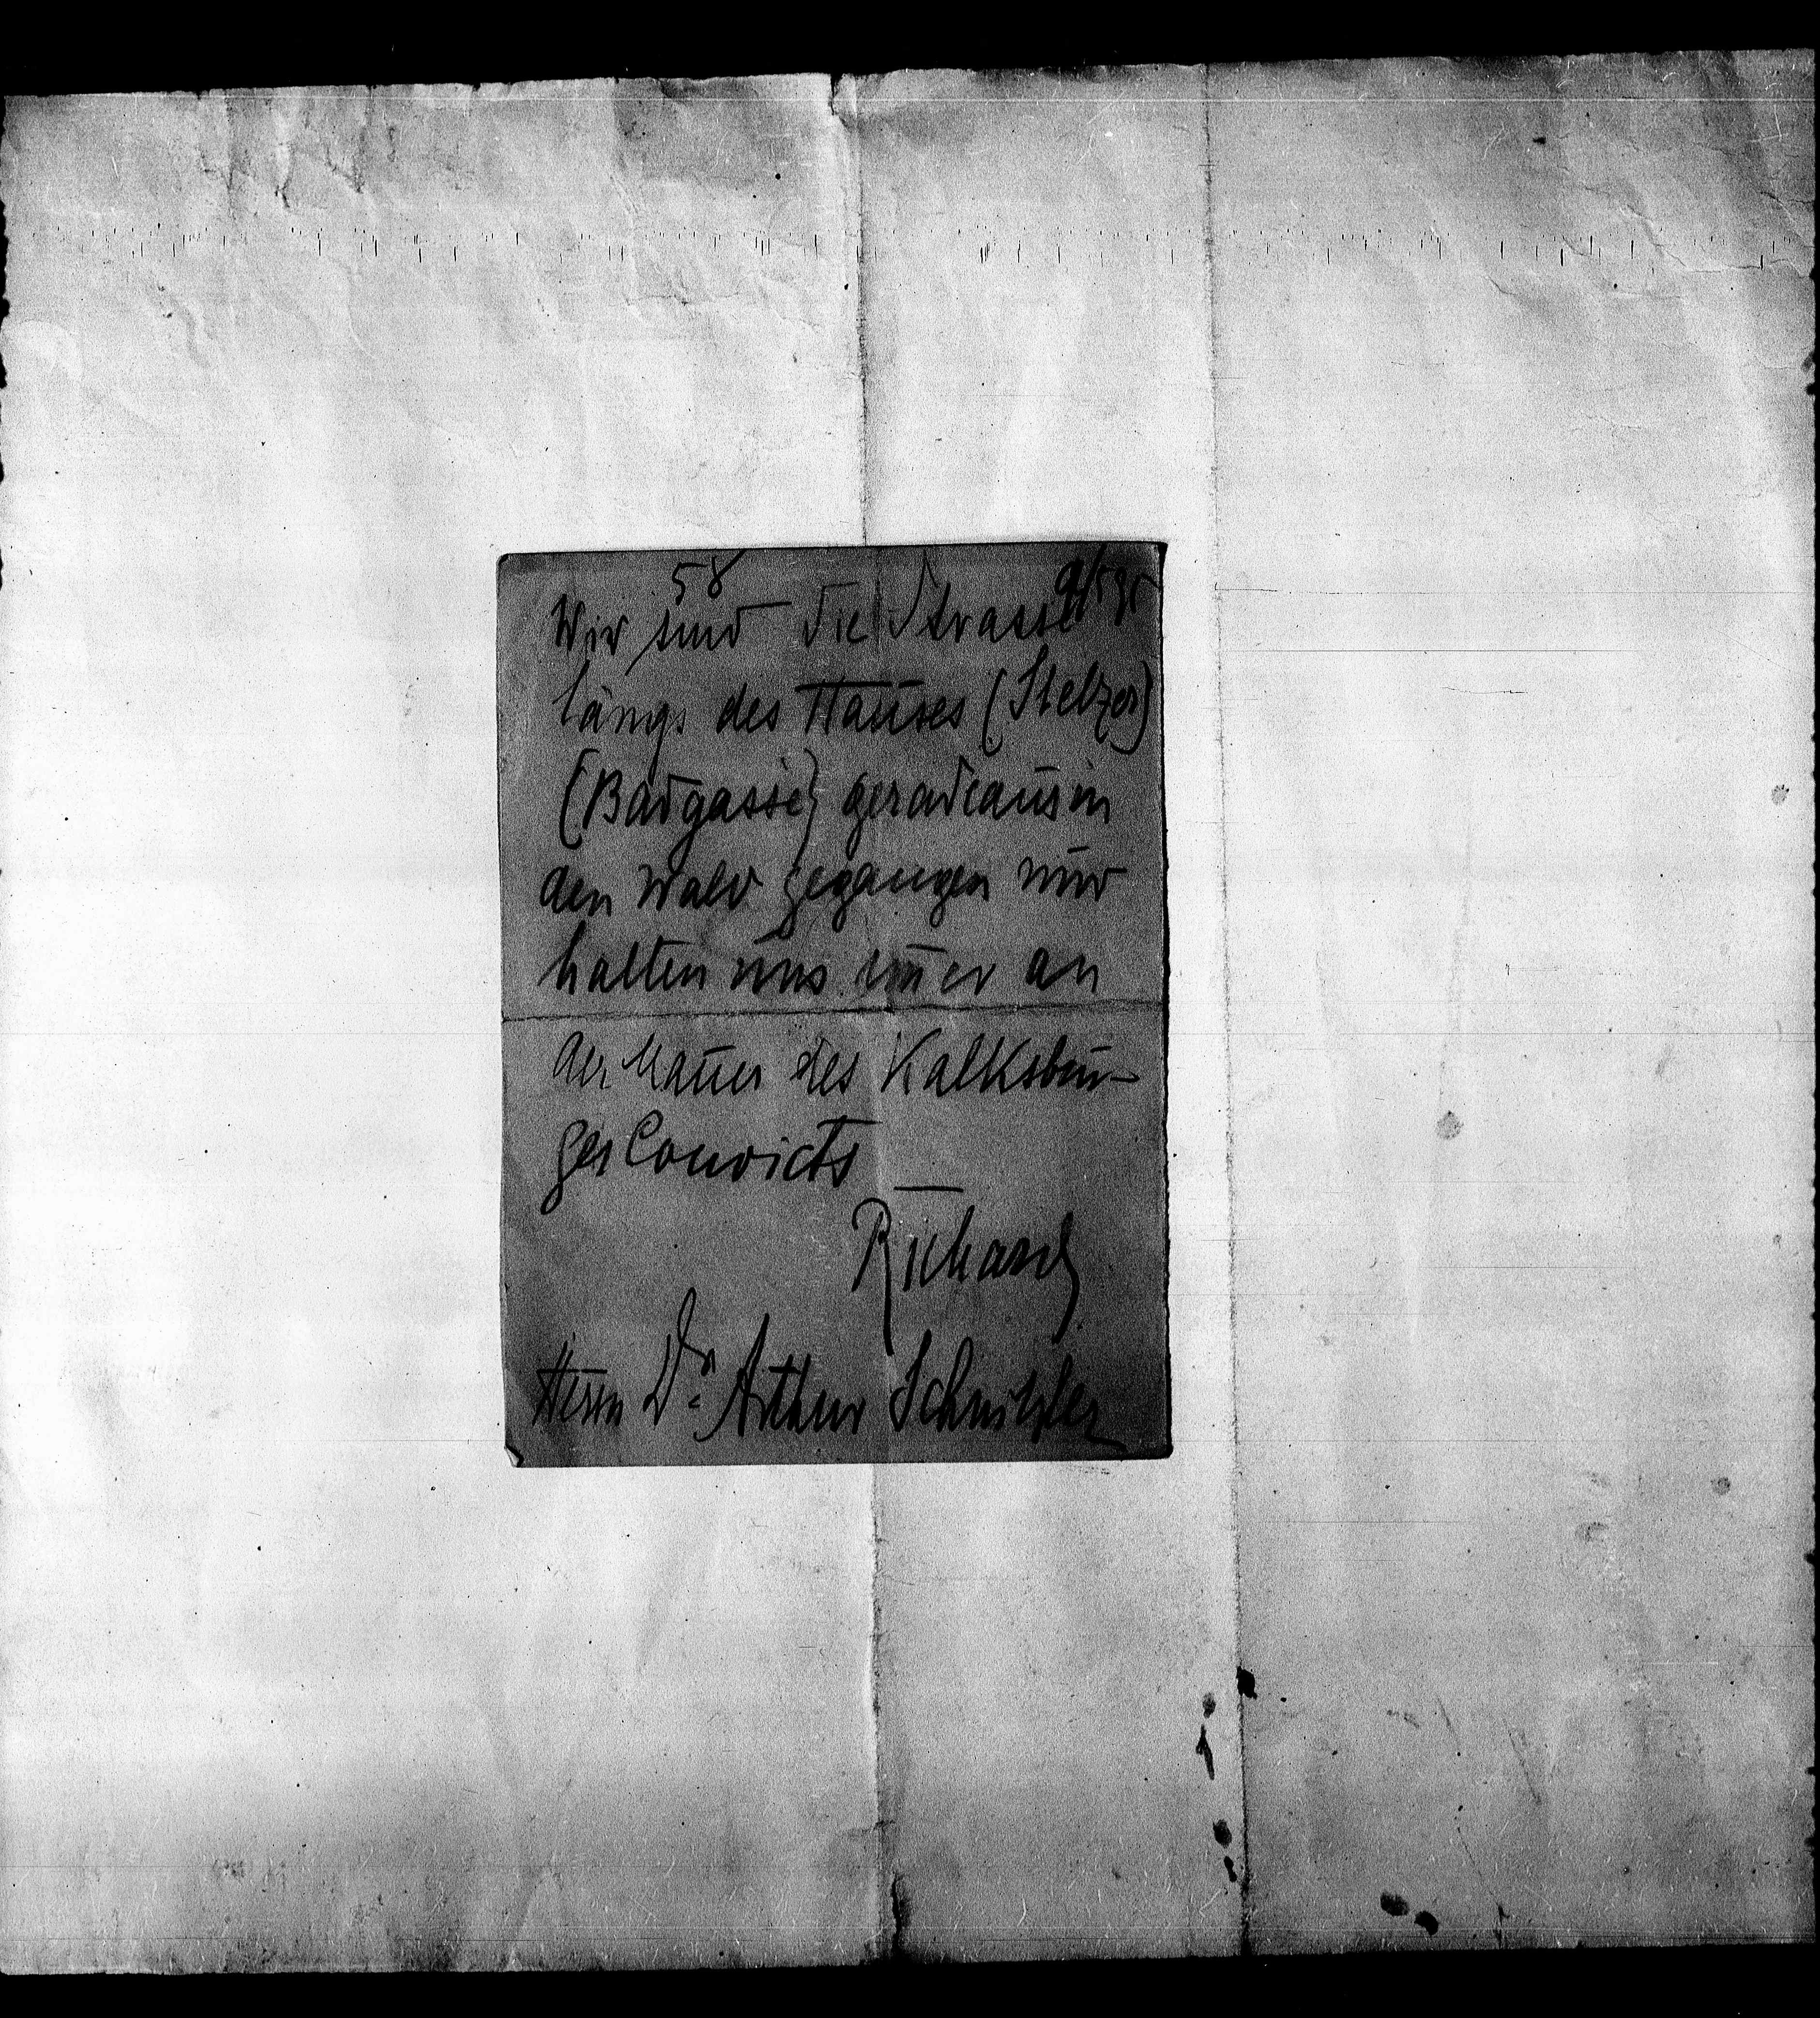 58
9/5 95
Wir sind die Strasse
längs des Hauses (Stelzer)
(Badgasse) geradeaus in
den Wald gegangen und
halten uns im̄er an
der Mauer des Kalksbur-
ger Convicts —
Richard
Herrn Dr Arthur Schnitzler